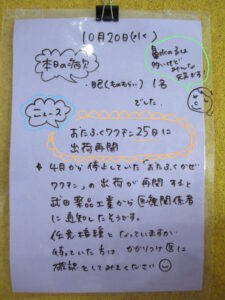 10月20日(火)
鼻水の子は
多いけど
みんな
元気です!
本日の病欠
・眼(ものもらい) 1名
でした。
ニュース
おたふくワクチン25日に
出荷再開
4月から停止していた「おたふくかぜ
ワクチン」の出荷が再開すると
武田薬品工業から医療関係者
に通知したそうです。
任意接種となっていますが
待っていた方は、かかりつけ医に
確認をしてみてください